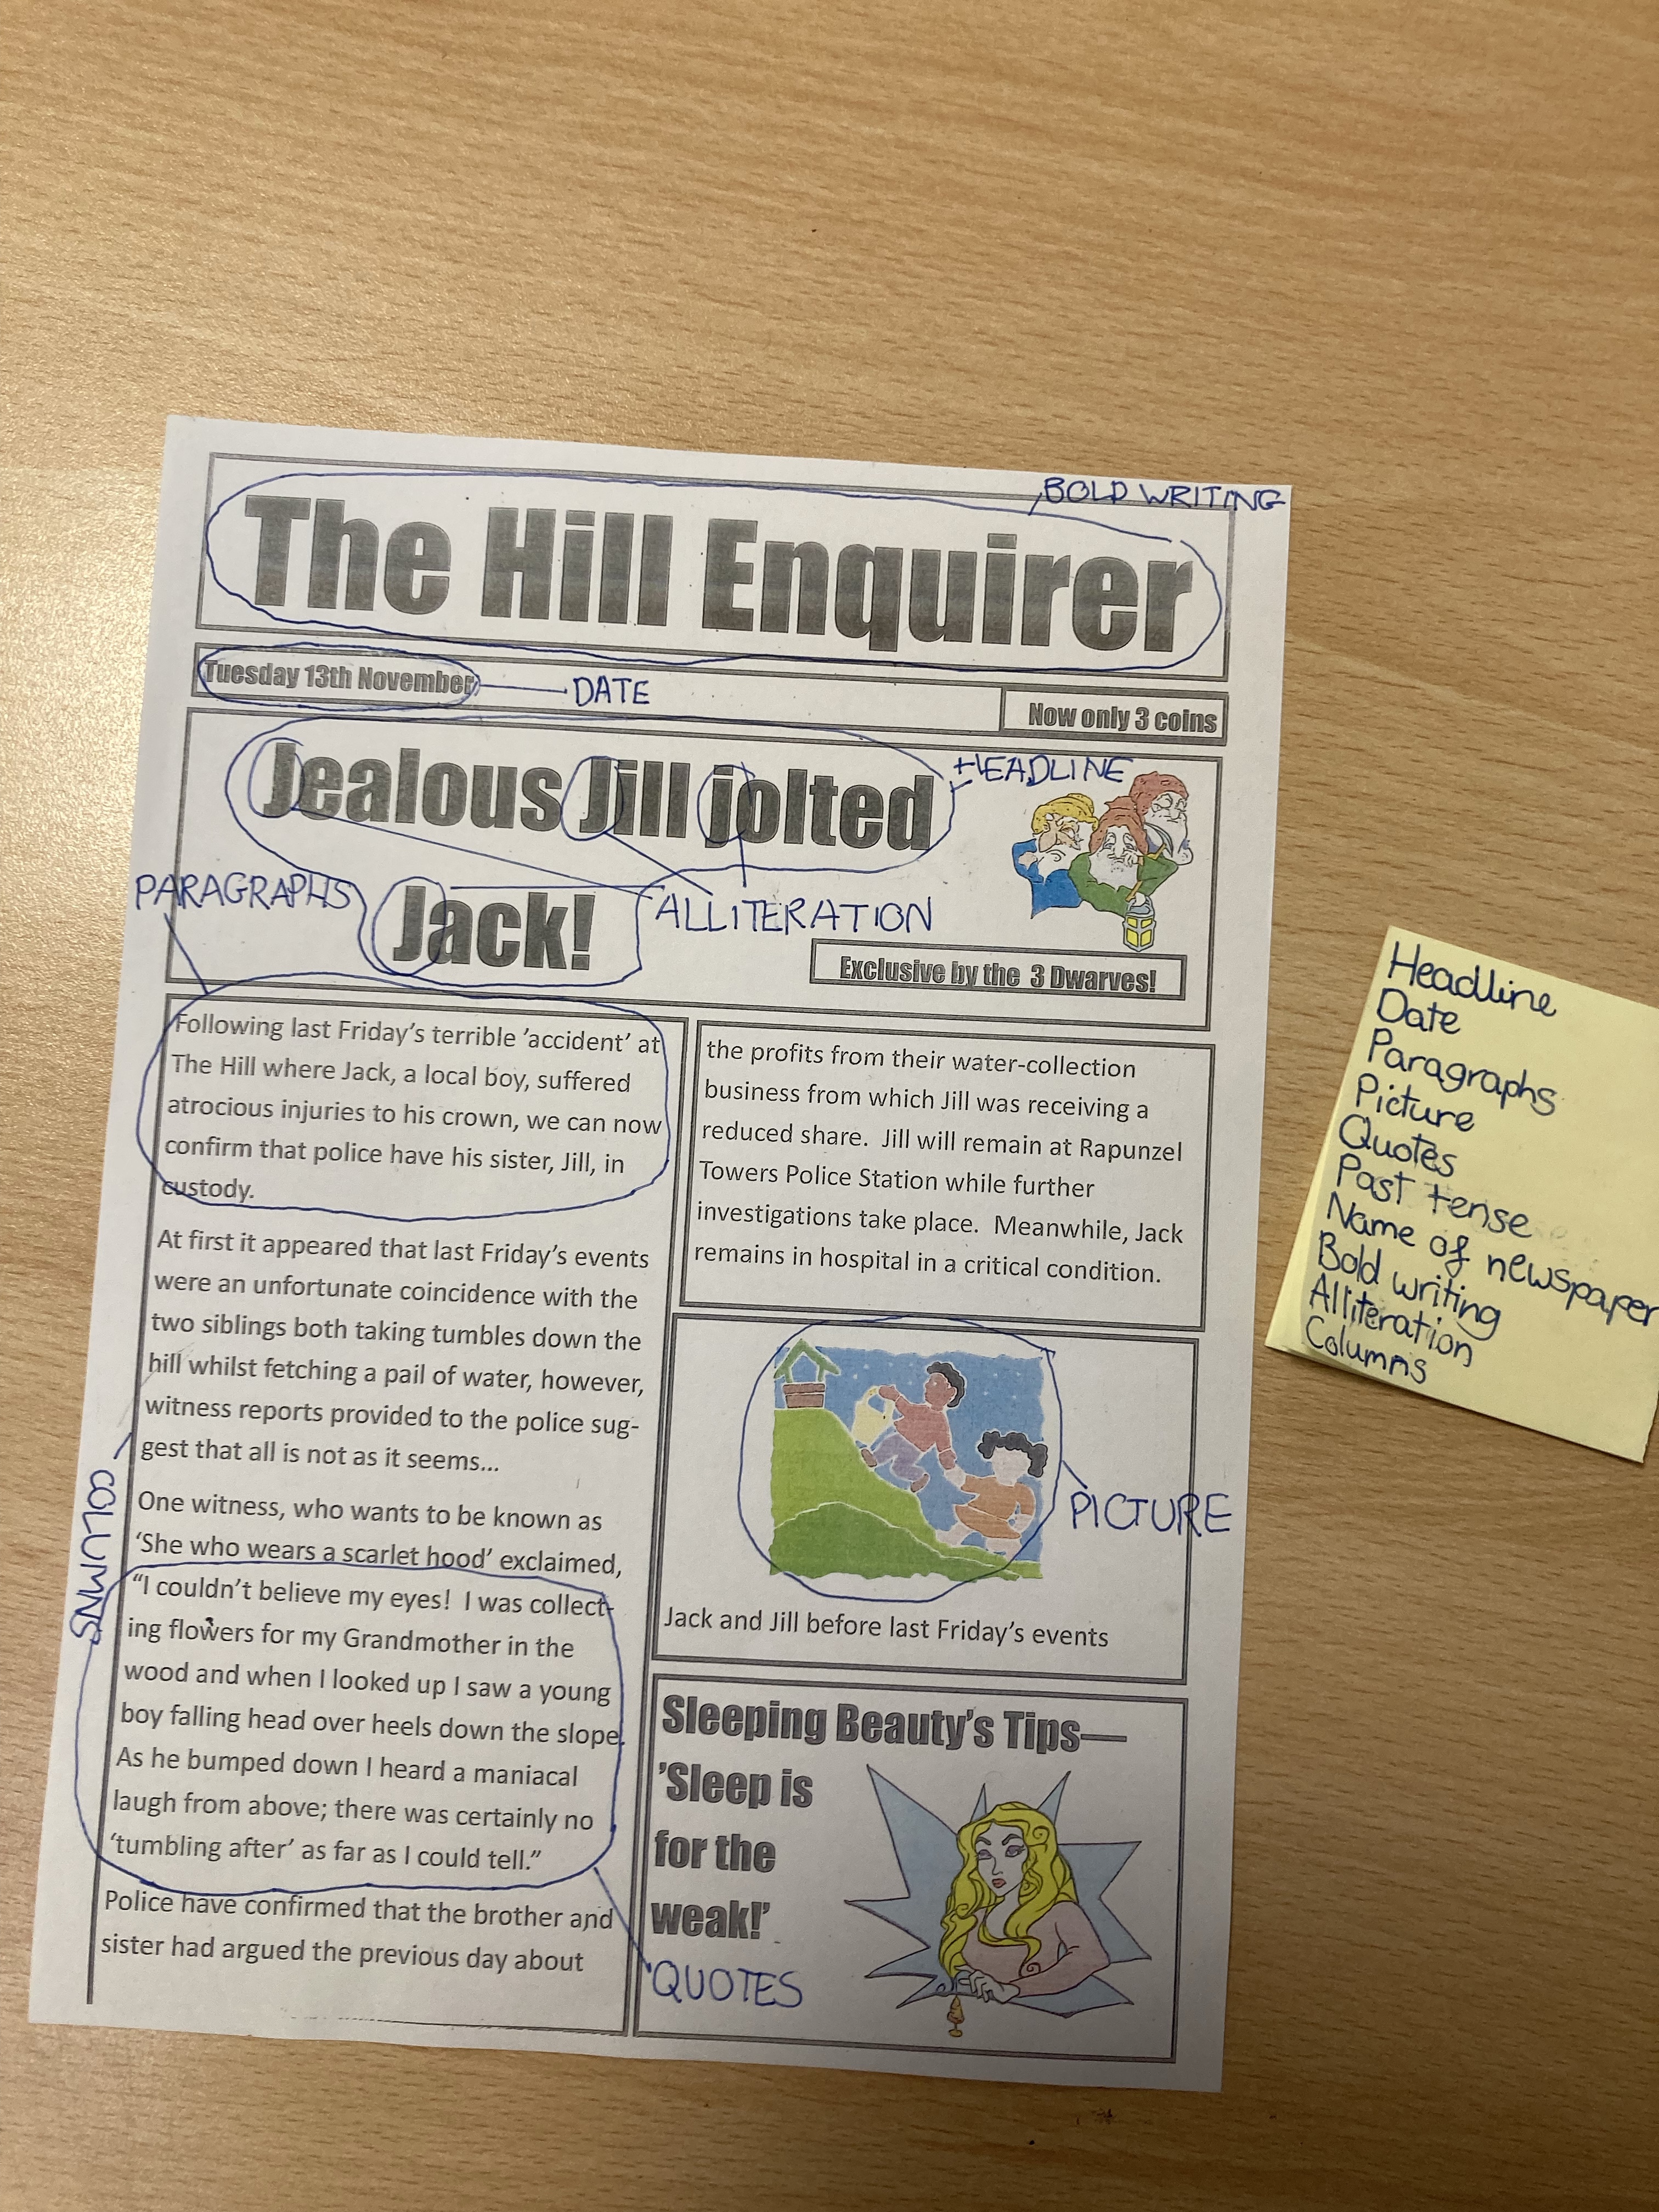 BOLD WRITING
The Hill Enquirer
Tuesday 13th November
DATE
Now only 3 coins
Jealous Jill jolted
HEADLINE
PARAGRAPHS
Jack!
ALLITERATION
Exclusive by the 3 Dwarves!
Following last Friday's terrible 'accident' at
The Hill where Jack, a local boy, suffered
atrocious injuries to his crown, we can now
confirm that police have his sister, Jill, in
custody.
At first it appeared that last Friday's events
were an unfortunate coincidence with the
two siblings both taking tumbles down the
hill whilst fetching a pail of water, however,
witness reports provided to the police sug-
gest that all is not as it seems...
One witness, who wants to be known as
'She who wears a scarlet hood' exclaimed,
"I couldn't believe my eyes! I was collect-
ing flowers for my Grandmother in the
wood and when I looked up I saw a young
boy falling head over heels down the slope.
As he bumped down I heard a maniacal
laugh from above; there was certainly no
'tumbling after' as far as I could tell."
Police have confirmed that the brother and
sister had argued the previous day about
COLUMNS
QUOTES
the profits from their water-collection
business from which Jill was receiving a
reduced share. Jill will remain at Rapunzel
Towers Police Station while further
investigations take place. Meanwhile, Jack
remains in hospital in a critical condition.
PICTURE
Jack and Jill before last Friday's events
Sleeping Beauty's Tips—
'Sleep is
for the
weak!'
Headline
Date
Paragraphs
Picture
Quotes
Past tense
Name of newspaper
Bold writing
Alliteration
Columns